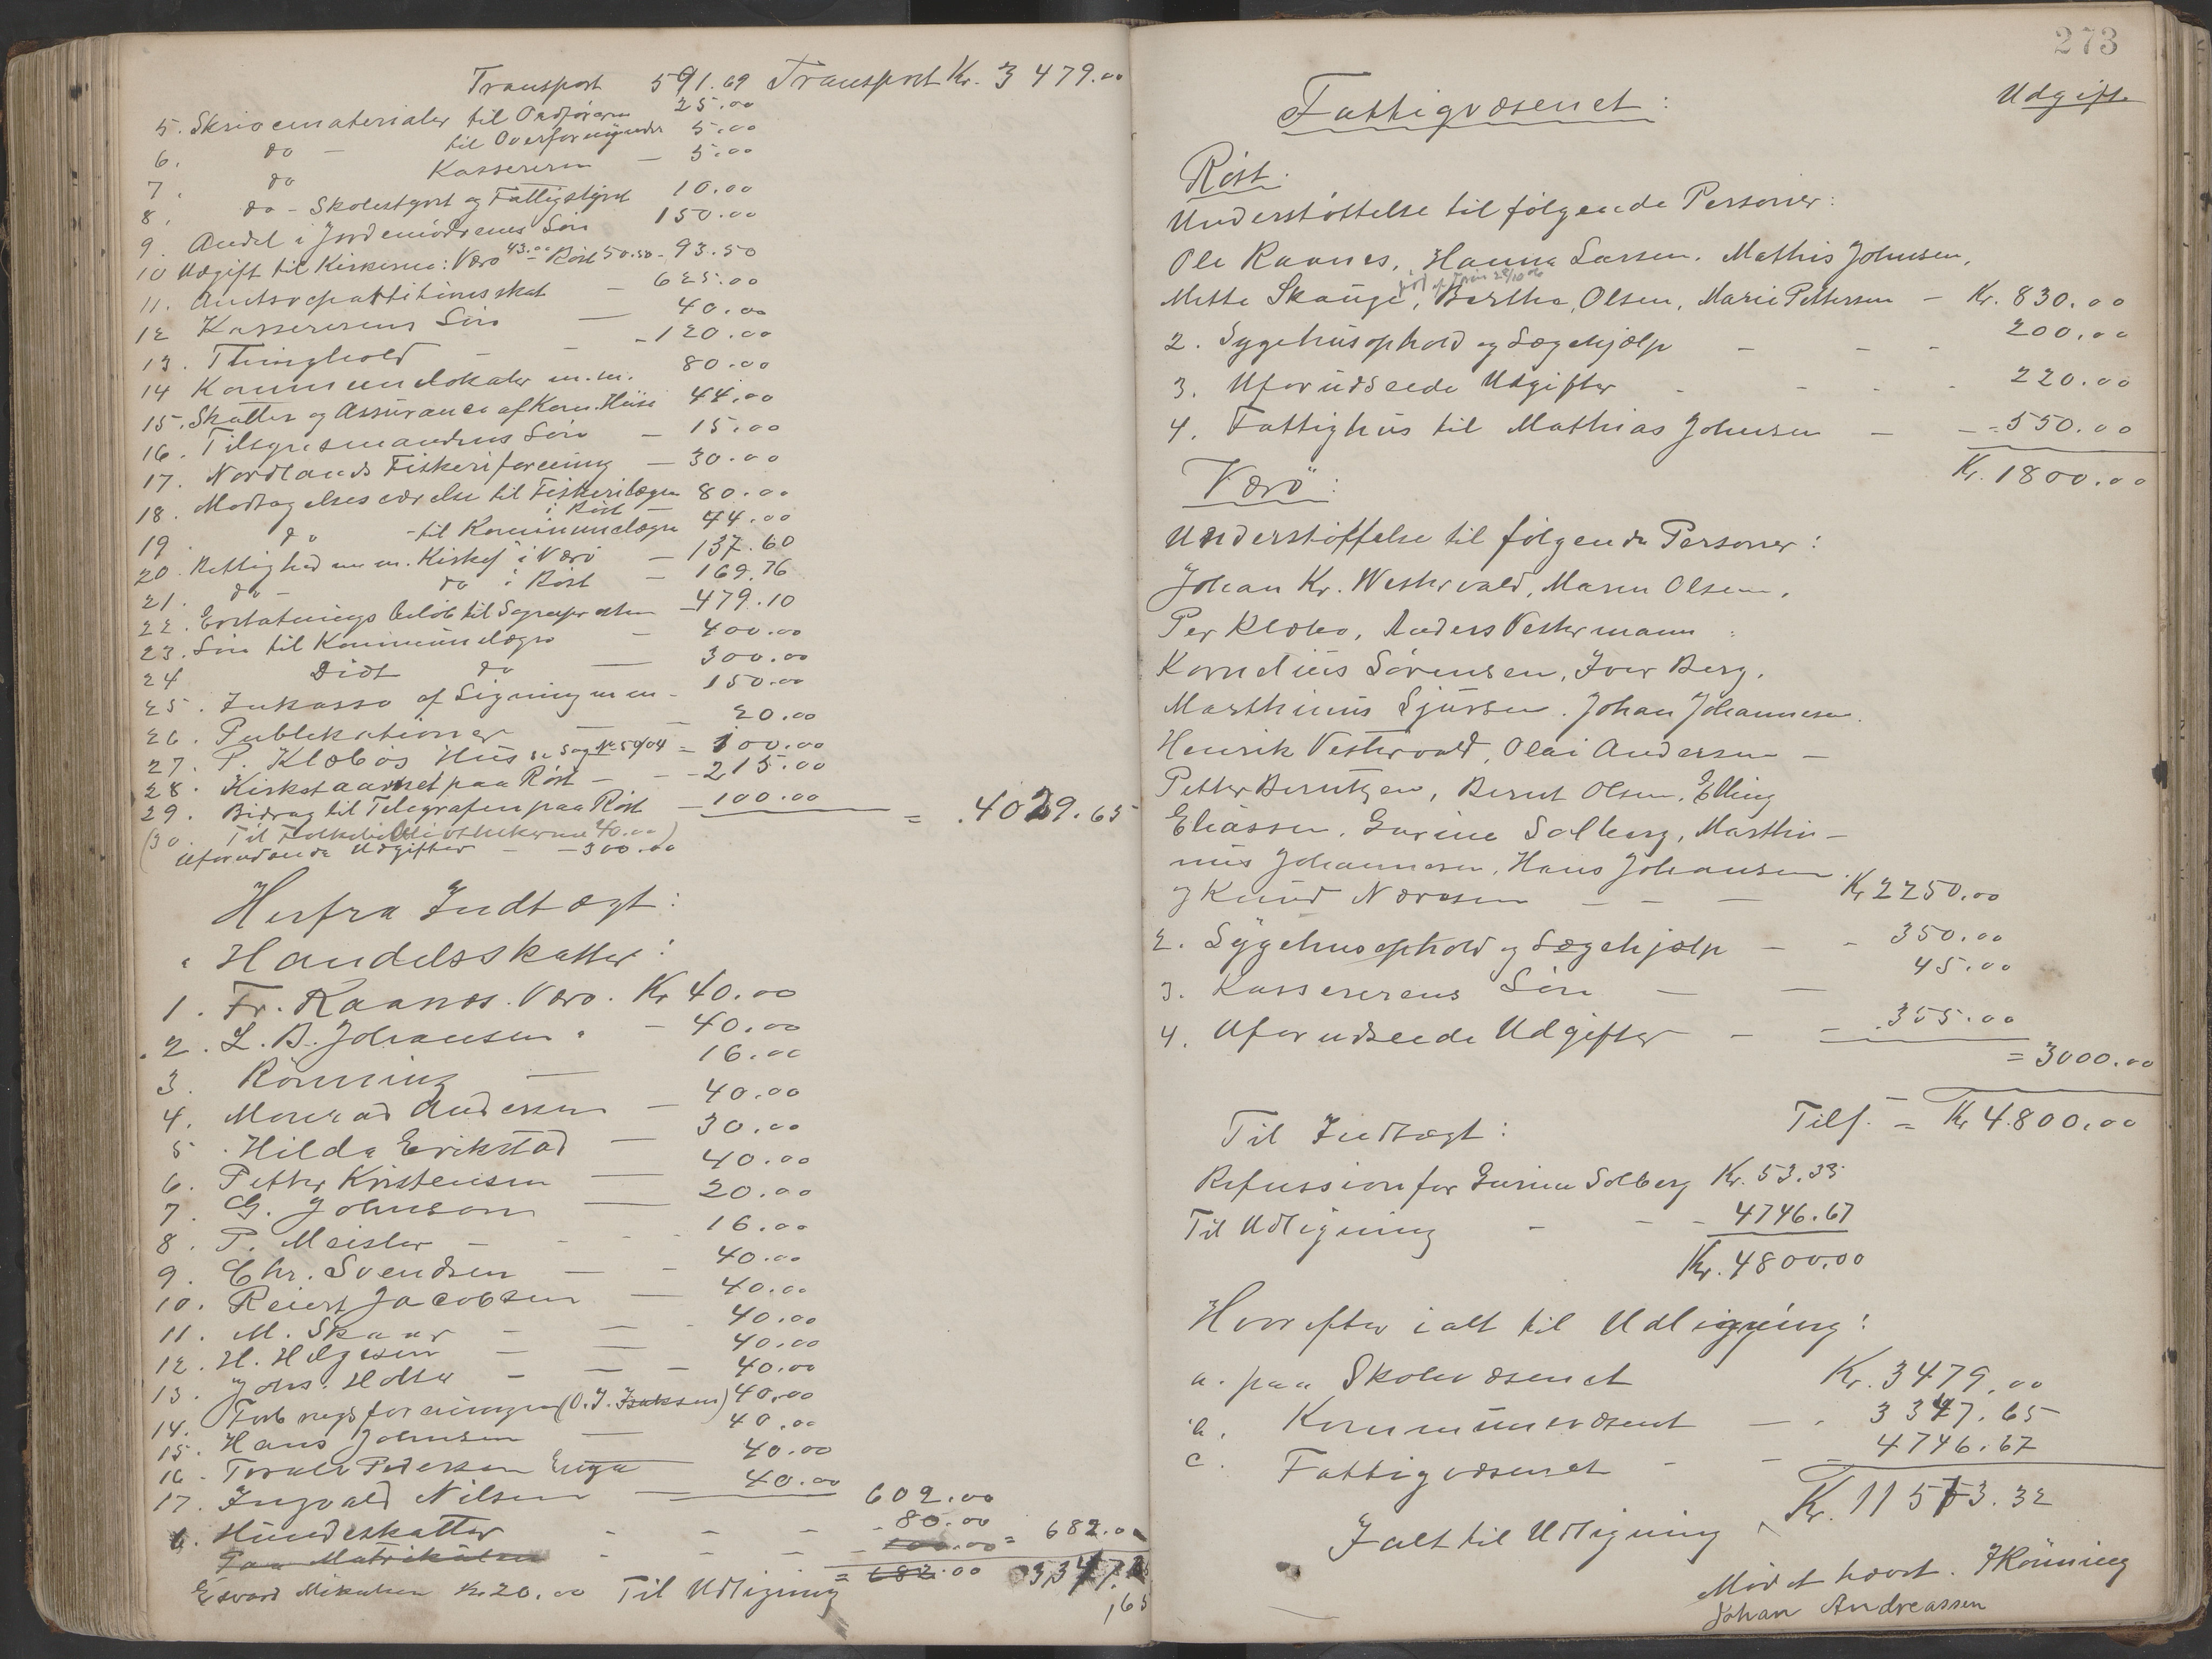 Transport 591.69 Transport Kr. 3 479.00
5. Skrivematerialer til Ordføreren 25.00
6. do — til Overformynder 5.00
7. do Kassereren — 5.00
8. do - Skolestyret og Fattigstyret 10.00
9. Andel i Jordemødrenes Løn 150.00
10 Udgift til Kirkerne: Værø 43.00 Røst 50.50 - 93.50
11. Amtsrepartitionsskat — 625.00
12 Kassererens Løn — 40.00
13. Thinghold — - 120.00
14 Kommunelokaler m.m. 80.00
15. Skatter og Assurance af Kom. Huse 44.00
16. Tilsynsmandens Løn — 15.00
17. Nordlands Fiskeriforening — 30.00
18. Modtagelsesværelse til Fiskerilægen 80.00
i Røst —
19 do - til Kommunelægen 44.00
20. Rettighed m.m. Kirkej i Værø — 137.60
21. do - do i Røst — 169.76
22. Erstatningsbeløb til Sognepresten — 479.10
23. Løn til Kommunelægen — 400.00
24 Didt do — 300.00
25. Inkasso af Ligning m m - 150.00
26. Publikationer — 20.00
27. P. Klæbos Hus se Sag № 50/04 = 100.00
28. Kirketaarnet paa Røst — - 215.00
29. Bidrag til Telegrafen paa Røst — 100.00 = 4029.65
(30. Til Folkebibliothekerne 40.00)
Uforudseende Udgifter — - 300.00
Herfra Indtægt:
a Handelsskatter:
1. Fr. Raanes. Værø. Kr 40.00
2. L. B. Johansen " — 40.00
3. Rønning — 16.00
4. Monrad Andersen — 40.00
5. Hilda Erikstad — 30.00
6. Petter Kristensen — 40.00
7. G. Johnson — 20.00
8. P. Meister — 16.00
9. Chr. Svendsen — 40.00
10. Reiert Jacobsen — 40.00
11. M. Skaar — 40.00
12. H. Helgesen — 40.00
13. Johs. Holter — 40.00
14. Forbrugsforeningen (O. J. Isaksen) 40.00
15. Hans Johnsen — 40.00
16. Toralv Pedersen Enga 40.00
17. Ingvald Nilsen — 40.00 602.00
b. Hundeskatter - - - - 80.00
Paa Matrikulen - - - 100.00 = 682.00
= 682.00 3347.65
Edvard Mikalsen Kr. 20.00 Til Udligning ,65
273
Udgift
Fattigvæsenet:
Røst.
Understøttelse til følgende Personer:
Ole Raanes, Hanna Larsen. Mathis Johnsen,
Mette Skauge, Berthe Olsen, Marie Pettersen — Kr. 830.00
2. Sygehusophold og Lægehjælp — - - 200.00
3. Uforudseede Udgifter - - - - 220.00
4. Fattighus til Mathias Johnsen — - 550.00
Kr. 1800.00
Værö:
Understøttelse til følgende Personer:
Johan Kr. Westervald, Maren Olsen,
Per Klæbo, Anders Vestermann
Kornelius Sørensen, Iver Berg,
Marthinus Sjursen. Johan Johannesen.
Henrik Vestervald, Olai Andersen —
Petter Berntzen, Bernt Olsen, Elling
Eliassen, Gurine Solberg, Marthi-
nus Johannesen, Hans Johansen
og Knud Næresen — — — Kr 2250.00
2. Sygehusophold og Lægehjælp — - 350.00
3. Kassererens Løn — — 45.00
4. Uforudseede Udgifter — - 355.00
= 3000.00
Tils. = Kr 4.800.00
Til Indtægt:
Refussion for Gurine Solberg Kr. 53.33
Til Udligning - - - 4746.67
Kr. 4800.00
Hvorefter ialt til Udligning:
a. paa Skolevæsenet Kr. 3479.00
b. Kommunevæsenet — - 3347.65
c. Fattigvæsenet - - - 4746.67
Ialt til Udligning Kr. 11573.32
Mødet hævet. F Rönning
Johan Andreassen